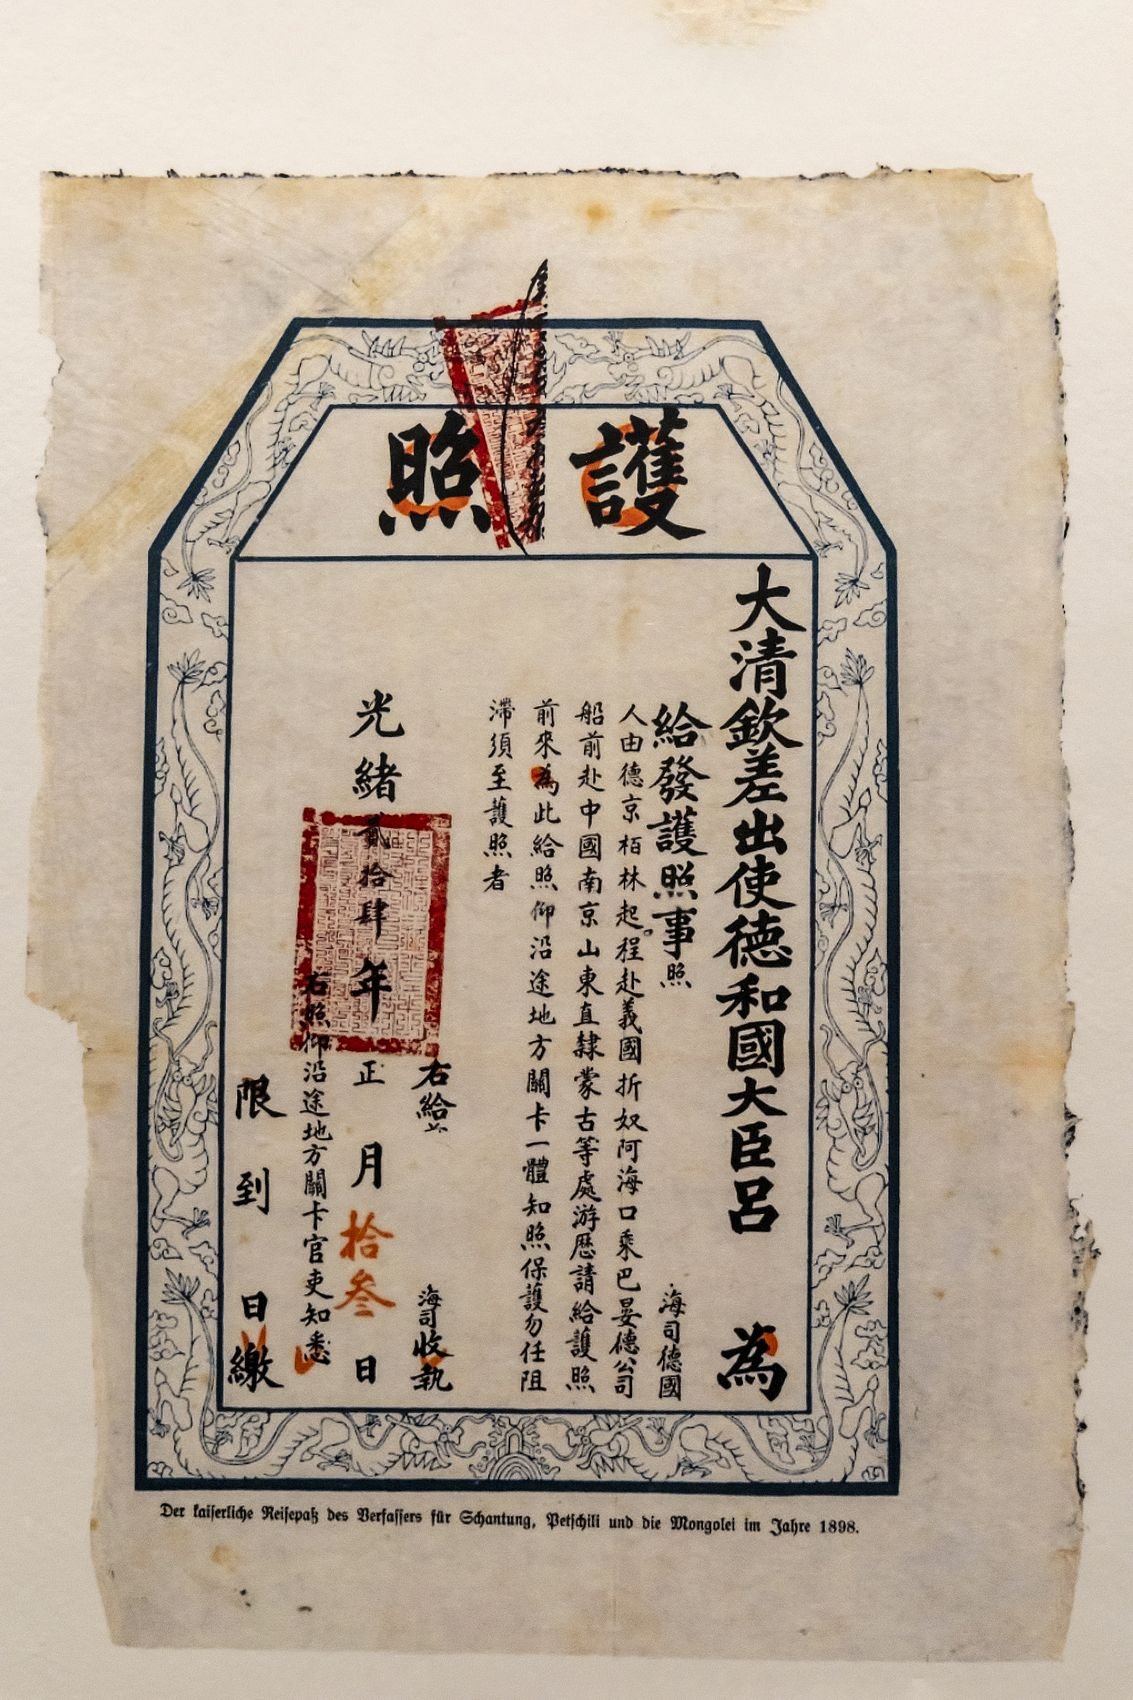 護照
大清欽差出使德和國大臣呂 為
給發護照事照 海司德國
人由德京栢林起程赴義國折奴阿海口乘巴晏德公司
船前赴中國南京山東直隸蒙古等處游歷請給護照
前來為此給照仰沿途地方關卡一體知照保護勿任阻
滯須至護照者
右給 海司收執
光緒貳拾肆年正月拾叁日
右照仰沿途地方關卡官吏知悉
限到 日繳
Der kaiserliche Reisepaß des Verfassers für Schantung, Petschili und die Mongolei im Jahre 1898.